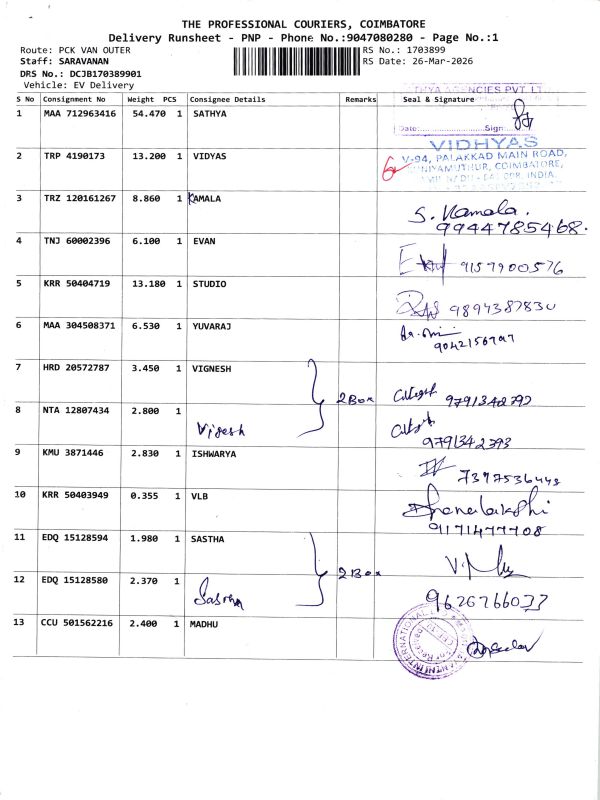 THE PROFESSIONAL COURIERS, COIMBATORE
Delivery Runsheet - PNP - Phone No.:9047080280 - Page No.:1
Route: PCK VAN OUTER RS No.: 1703899
Staff: SARAVANAN RS Date: 26-Mar-2026
DRS No.: DCJB170389901
Vehicle: EV Delivery
S No Consignment No Weight PCS Consignee Details Remarks Seal & Signature
AGENCIES PVT
1 MAA 712963416 54.470 1 SATHYA
Date: Sign
VIDHYAS
2 TRP 4190173 13.200 1 VIDYAS V-94, PALAKKAD MAIN ROAD,
COIMBATORE,
INDIA.
3 TRZ 120161267 8.860 1 KAMALA S. Kamala.
9944785468.
4 TNJ 60002396 6.100 1 EVAN 9157900576
5 KRR 50404719 13.180 1 STUDIO
6 MAA 304508371 6.530 1 YUVARAJ
7 HRD 20572787 3.450 1 VIGNESH 2 Box 9791342792
8 NTA 12807434 2.800 1
Vignesh 9791342793
9 KMU 3871446 2.830 1 ISHWARYA
10 KRR 50403949 0.355 1 VLB
11 EDQ 15128594 1.980 1 SASTHA 2 Box
12 EDQ 15128580 2.370 1 Sastha
13 CCU 501562216 2.400 1 MADHU